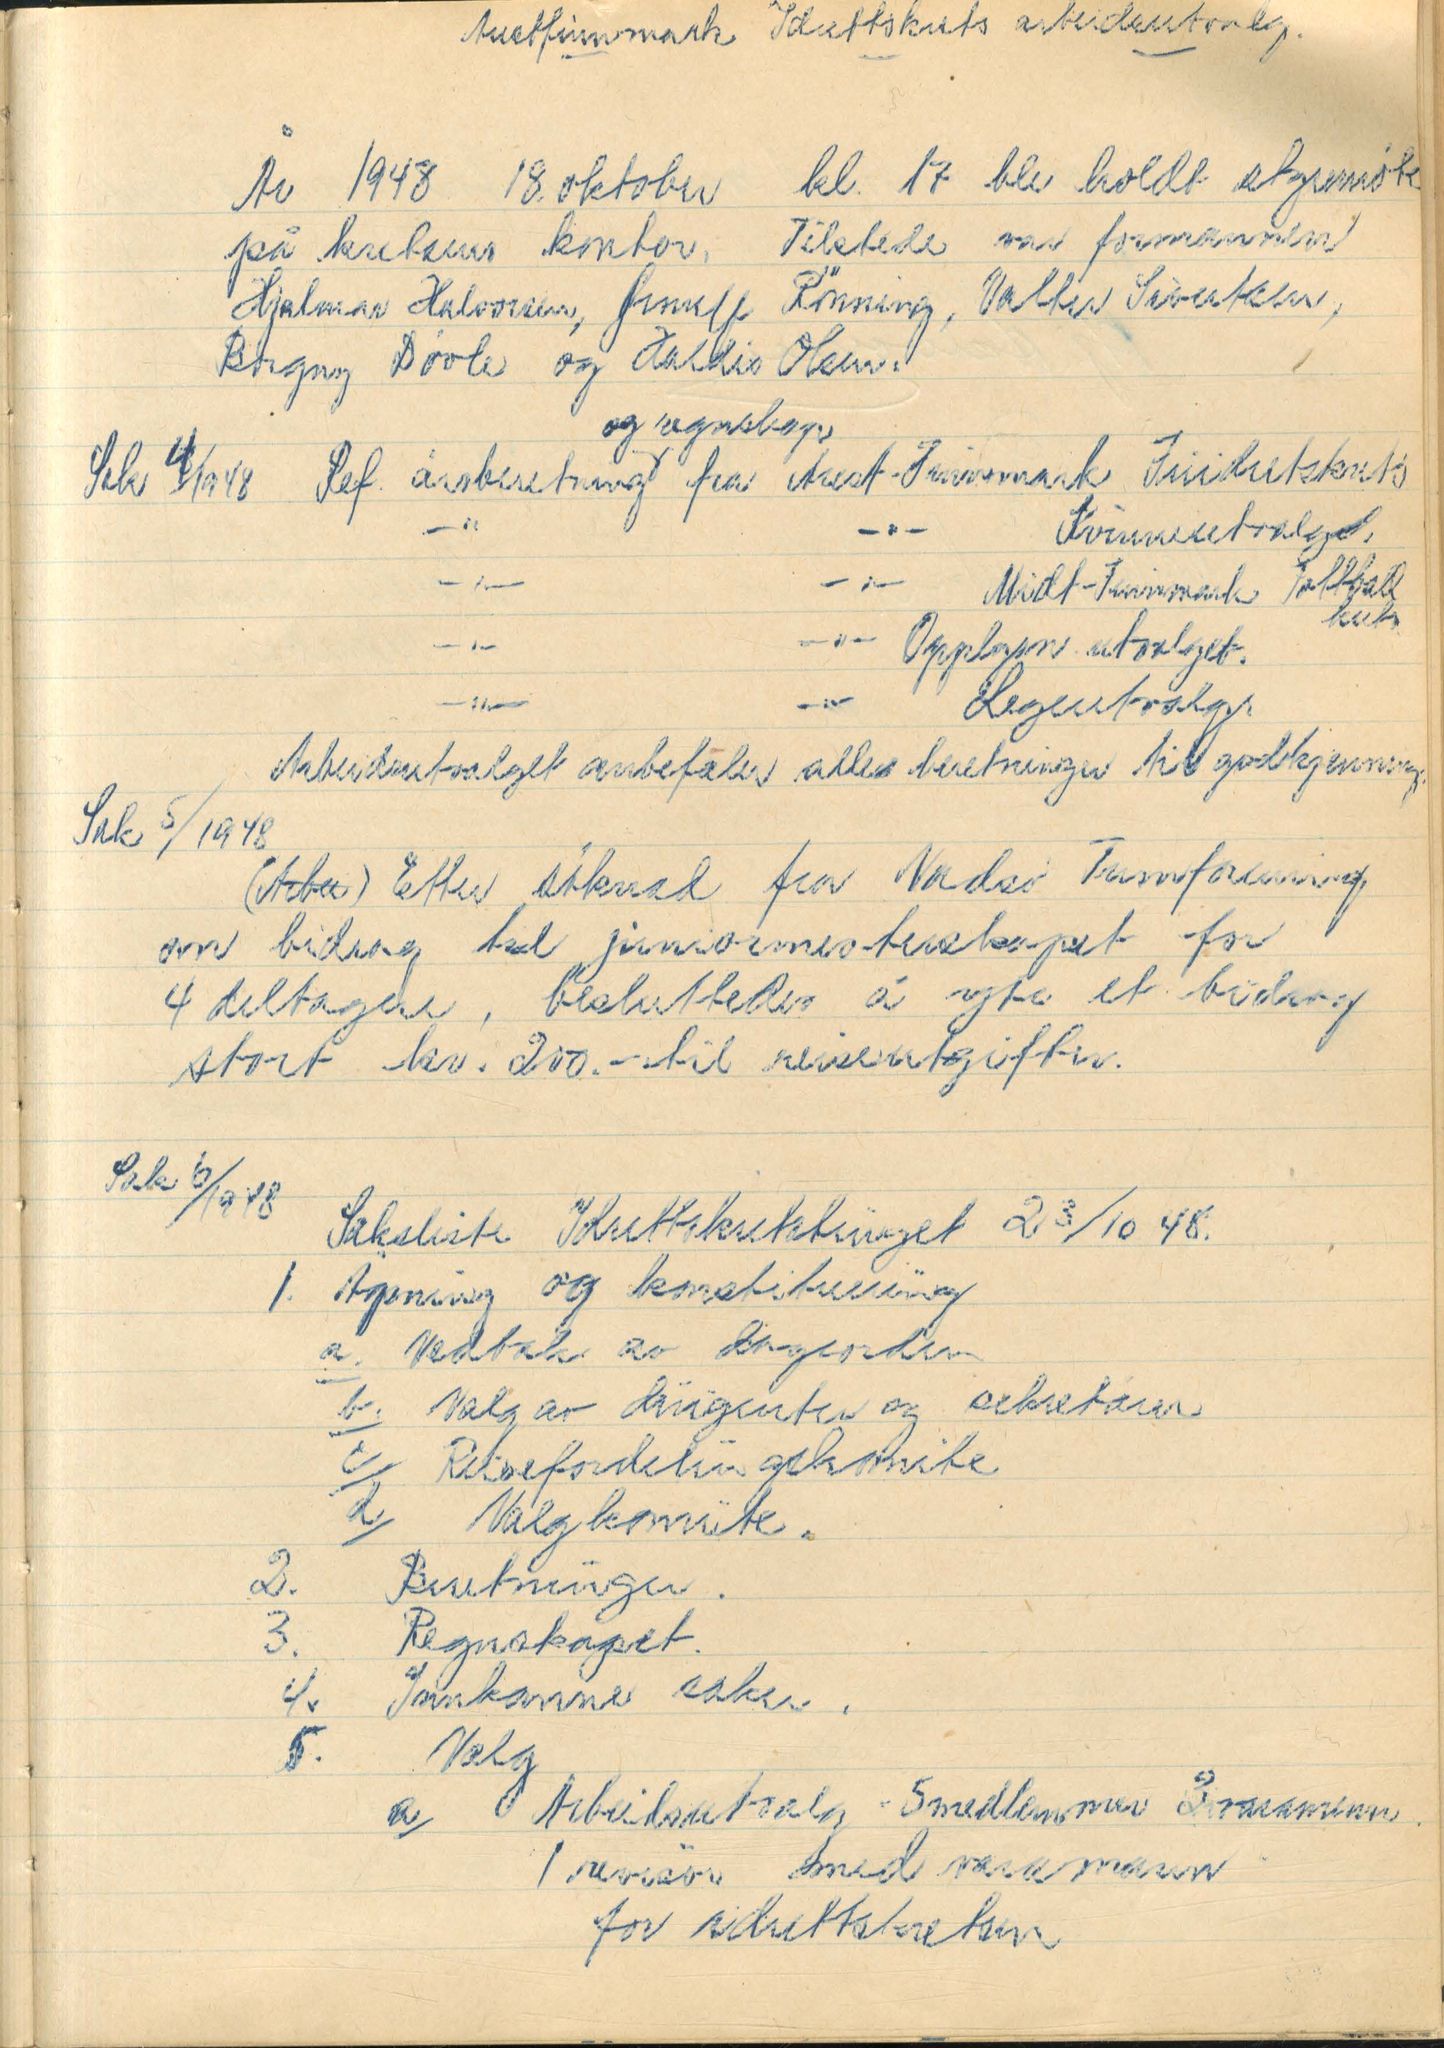 Austfinnmark Idrettskrets arbeidsutvalg.
År 1948 18. oktober kl. 17 ble holdt styremöte
på kretsens kontor. Tilstede var formannen
Hjalmar Halvorsen, Rönning, Valter Sivertsen,
Borgny Dövle og Haldis Olsen.
og regnskap
Sak 4/1948 Ref. årsberetning fra Aust-Finnmark Friidretskrets
-"- -"- Kvinneutvalget.
-"- -"- Midt-Finnmark Fotball
krets
-"- -"- Opplysn. utvalget.
-"- -"- Legeutvalg.
Arbeidsutvalget anbefaler alle beretninger til godkjenning.
Sak 5/1948
(Arbei) Etter söknad fra Vadsö Turnforening
om bidrag til juniormesterskapet for
4 deltagere, besluttedes å yte et bidrag
stort kr. 200.- til reiseutgifter.
Sak 6/1948
Saksliste Idrettskretstinget 23/10 48.
1. Åpning og konstituering
a. Vedtak av dagsorden
b. Valg av dirigenter og sekretærer
c/ Reisefordelingskomite
d/ Valgkomite.
2. Beretninger.
3. Regnskapet.
4. Innkomne saker.
5. Valg
a/ Arbeidsutvalg - 5 medlemmer 3 varamenn.
1 revisor med varamann
for idrettskretsen